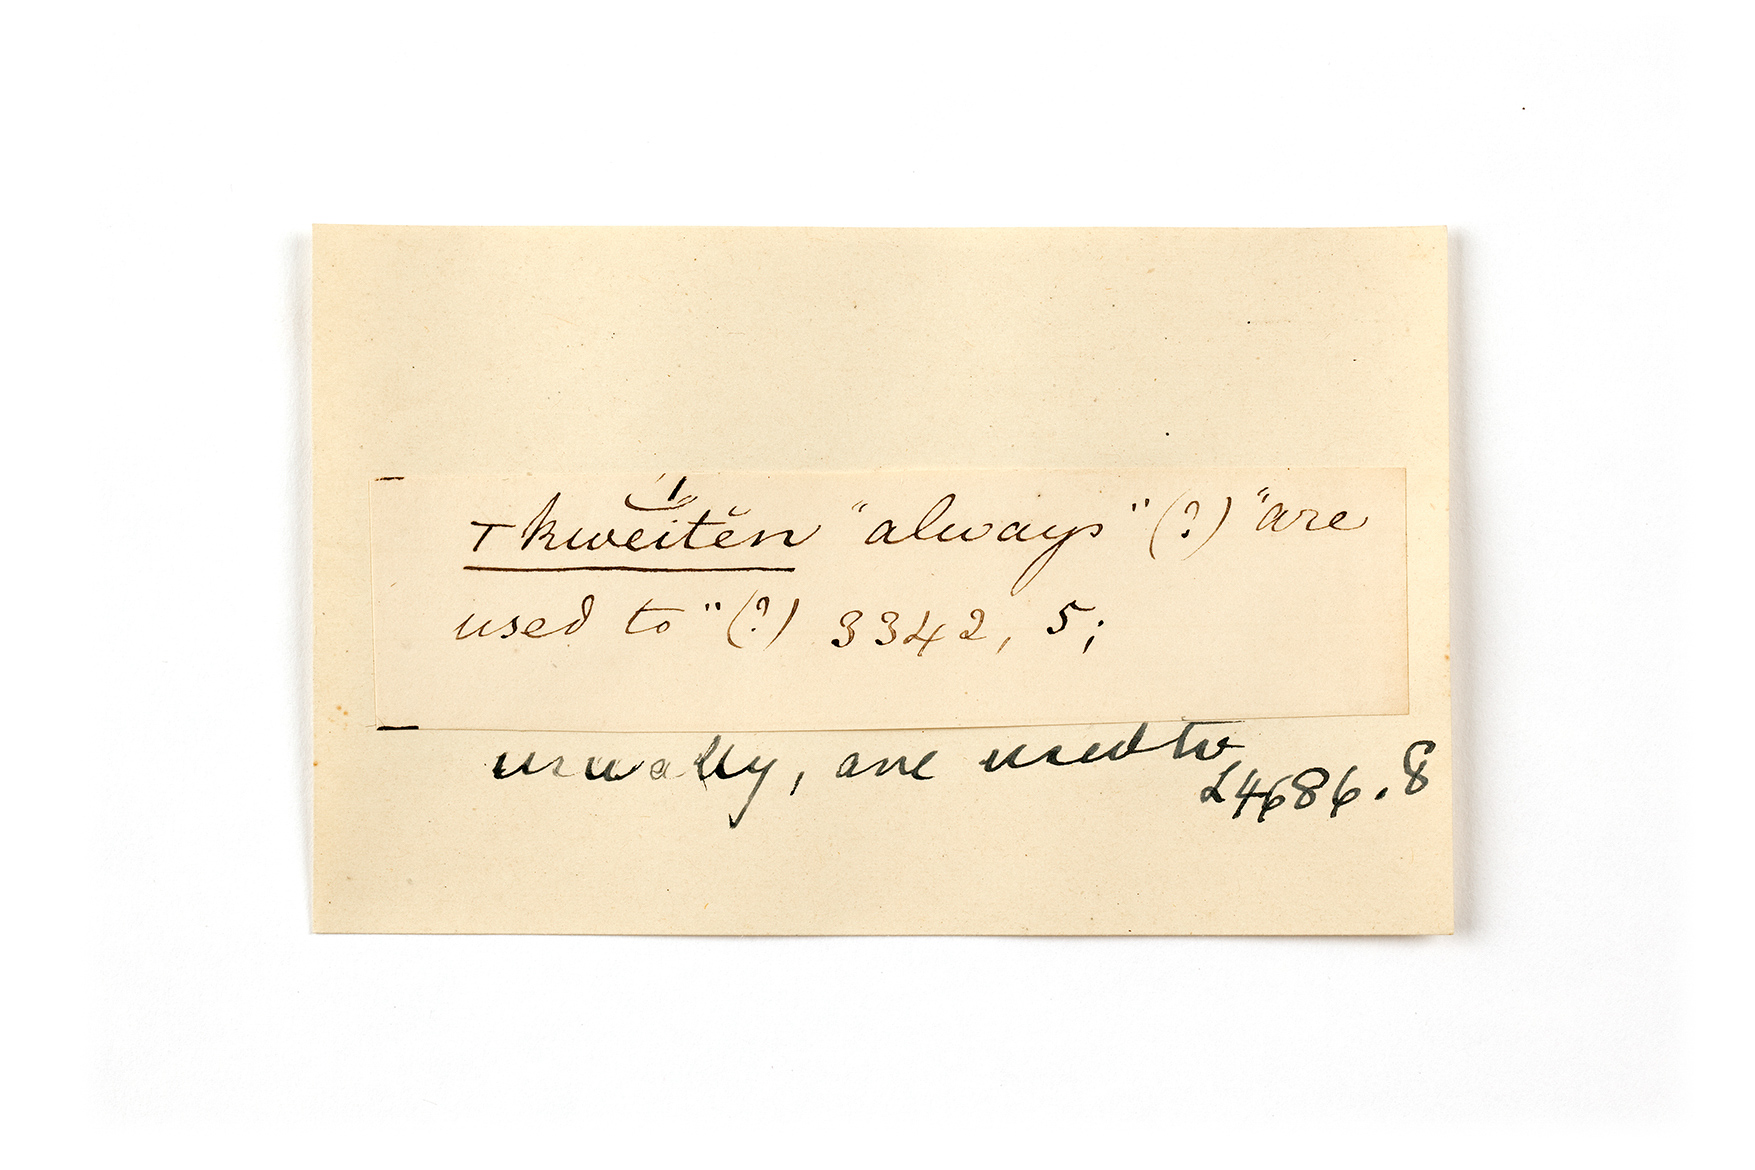 ⊤kwe͝ítĕn "always" (?) "are
used to" (?) 3342, 5;
usually, are used to
L4686.8